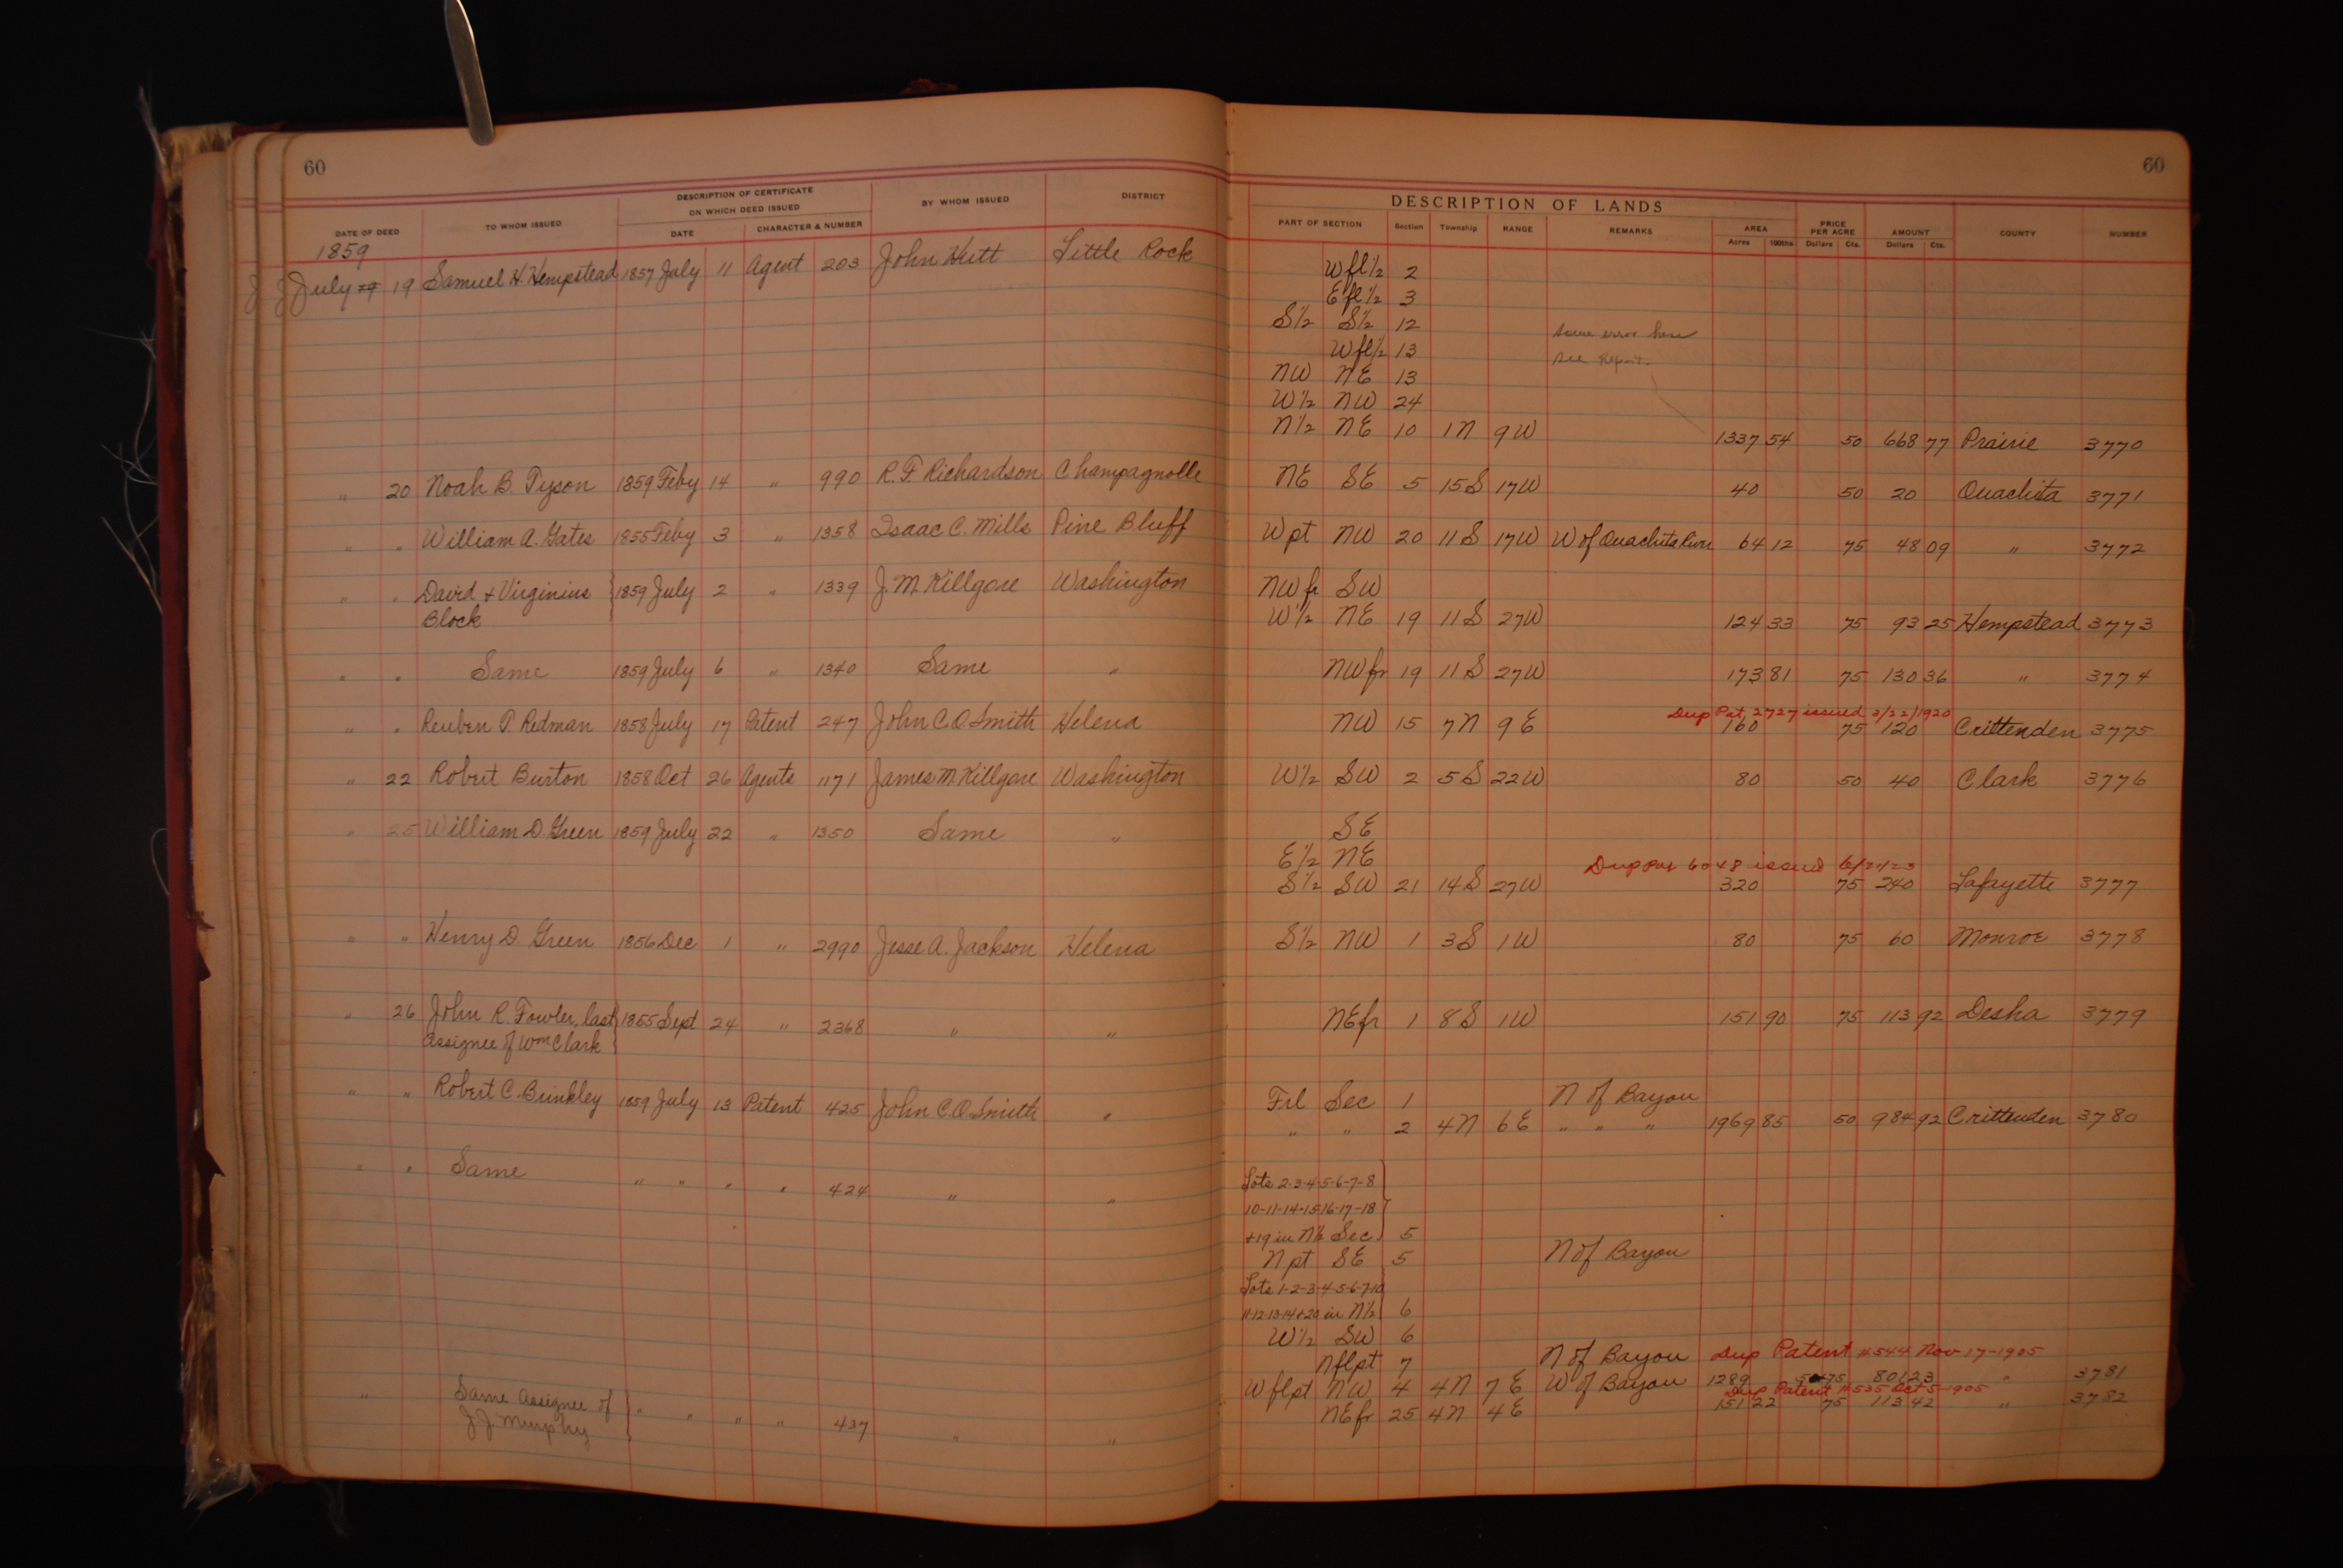 60
DATE OF DEED TO WHOM ISSUED DESCRIPTION OF CERTIFICATE ON WHICH DEED ISSUED BY WHOM ISSUED DISTRICT
DATE CHARACTER & NUMBER
1859
July 19 Samuel H. Hempstead 1857 July 11 Agent 203 John Hutt Little Rock
" 20 Noah B. Tyson 1859 Feby 14 " 990 R. F. Richardson Champagnolle
" " William A. Gates 1855 Feby 3 " 1358 Isaac C. Mills Pine Bluff
" " David & Virginius } 1859 July 2 " 1339 J. M. Killgore Washington
Block
" " Same 1859 July 6 " 1340 Same "
" " Reuben P. Redman 1858 July 17 Patent 247 John C. O. Smith Helena
" 22 Robert Burton 1858 Oct 26 Agents 1171 James M. Killgore Washington
" 25 William D. Green 1859 July 22 " 1350 Same "
" " Henry D. Green 1856 Dec 1 " 2990 Jesse A. Jackson Helena
" 26 John R. Fowler, last } 1855 Sept 24 " 2368 " "
Assignee of Wm Clark
" " Robert C. Brinkley 1859 July 13 Patent 425 John C. O. Smith "
" " Same " " " " 424 " "
" Same Assignee of } " " " " 437 " "
J. J. Murphy
60
DESCRIPTION OF LANDS
PART OF SECTION Section Township RANGE REMARKS AREA PRICE PER ACRE AMOUNT COUNTY NUMBER
Acres 100ths Dollars Cts. Dollars Cts.
W fl 1/2 2
E fl 1/2 3
S 1/2 S 1/2 12
Some error here
W fl 1/2 13
See Report.
NW NE 13
W 1/2 NW 24
N 1/2 NE 10 1N 9W 1337 54 50 668 77 Prairie 3770
NE SE 5 15S 17W 40 50 20 Ouachita 3771
W pt NW 20 11S 17W W of Ouachita River 64 12 75 48 09 " 3772
NW fr SW
W 1/2 NE 19 11S 27W 124 33 75 93 25 Hempstead 3773
NW fr 19 11S 27W 173 81 75 130 36 " 3774
Dup Pat 2727 issued 3/22/1920
NW 15 7N 9E 160 75 120 Crittenden 3775
W 1/2 SW 2 5S 22W 80 50 40 Clark 3776
SE
E 1/2 NE
Dup Pat issued
S 1/2 SW 21 14S 27W 320 75 240 Lafayette 3777
S 1/2 NW 1 3S 1W 80 75 60 Monroe 3778
NE fr 1 8S 1W 151 90 75 113 92 Desha 3779
Frl Sec 1 N of Bayou
" " 2 4N 6E " " " 1969 85 50 984 92 Crittenden 3780
Lots 2-3-4-5-6-7-8
10-11-14-15-16-17-18
+19 in N 1/2 Sec 5
N pt SE 5 N of Bayou
Lots 1-2-3-4-5-6-7-10
11-12-13-14+20 in N 1/2 6
W 1/2 SW 6
N fl pt 7 N of Bayou Dup Patent #544 Nov-17-1905
W fl pt NW 4 4N 7E W of Bayou 1289 75 801 23 " 3781
Dup Patent #535 Oct-5-1905
NE fr 25 4N 4E 151 22 75 113 42 " 3782